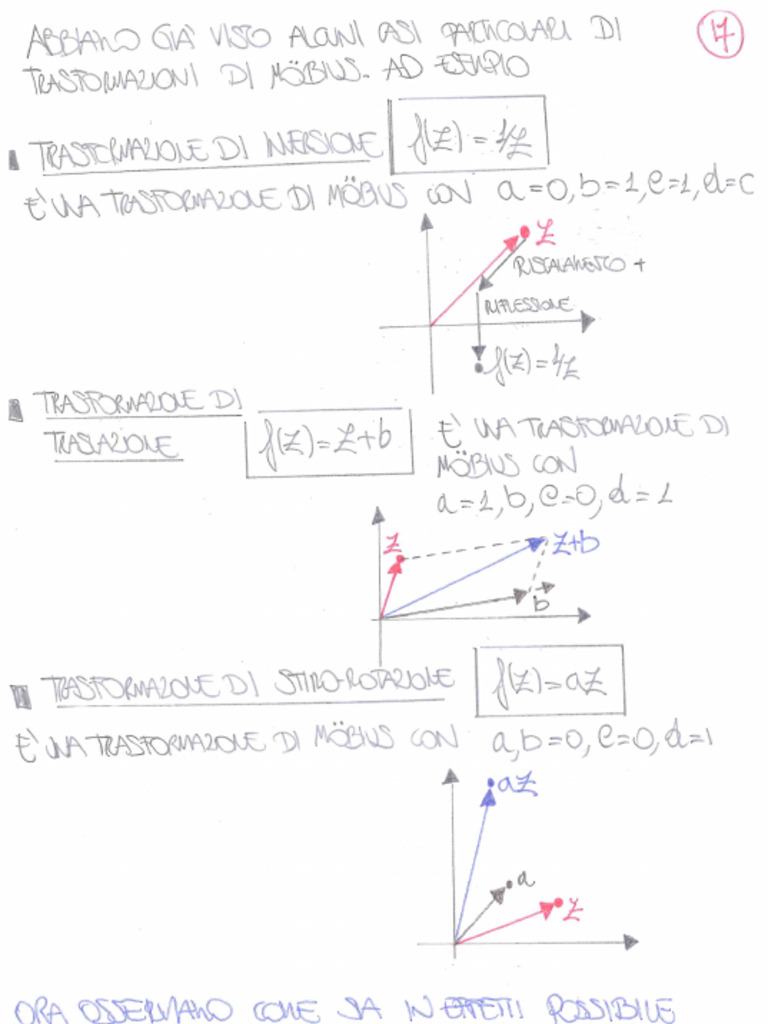 ABBIAMO GIÀ VISTO ALCUNI CASI PARTICOLARI DI
17
TRASFORMAZIONI DI MÖBIUS. AD ESEMPIO
TRASFORMAZIONE DI INVERSIONE f(z)=1/z
E' UNA TRASFORMAZIONE DI MÖBIUS CON a=0, b=1, c=1, d=c
z
RISCALAMENTO +
RIFLESSIONE
f(z)=1/z
TRASFORMAZIONE DI
TRASLAZIONE
f(z)=z+b
E' UNA TRASFORMAZIONE DI
MÖBIUS CON
a=1, b, c=0, d=1
z
z+b
b
TRASFORMAZIONE DI STIRO-ROTAZIONE f(z)=az
E' UNA TRASFORMAZIONE DI MÖBIUS CON a, b=0, c=0, d=1
az
a
z
ORA OSSERVIAMO COME SIA IN EFFETTI POSSIBILE